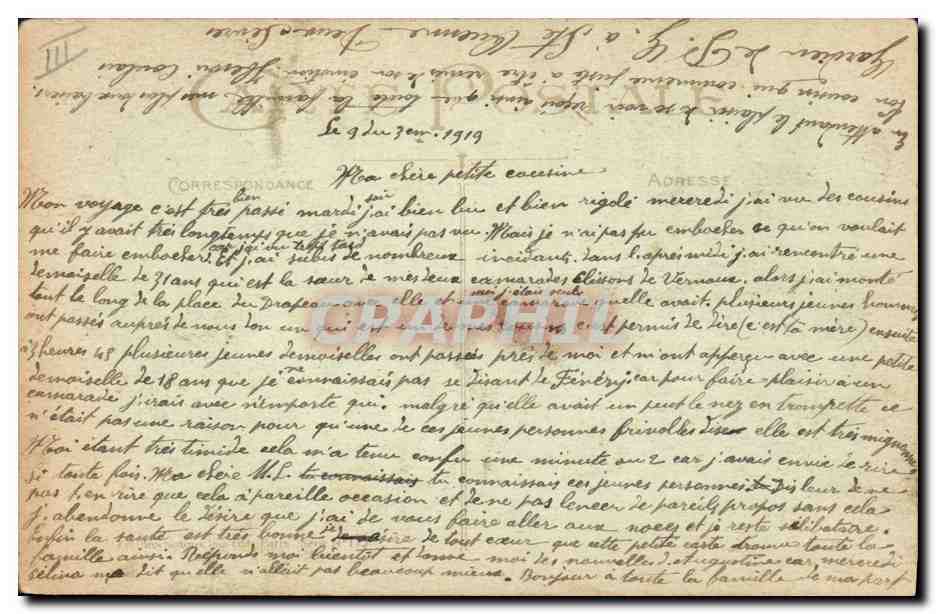 III
CARTE POSTALE
CORRESPONDANCE
ADRESSE
Le 9 du 3 em. 1919
Ma chère petite cousine
Mon voyage c'est très bien passé mardi soir j'ai bien bu et bien rigolé mercredi j'ai vu des cousins
qu'il y avait très longtemps que je n'avais pas vu. Mais je n'ai pas pu embocher ce qu'on voulait
me faire embocher car j'ai vu trop tard. Et j'ai subis de nombreux incidents, dans l'après midi j'ai rencontré une
demoiselle de 31 ans qui est la sœur de mes deux camarades Clissons de Vernoux, alors j'ai monté
tout le long de la place du Drapeau avec elle et une qu'elle avait, plusieurs jeunes hommes
ont passés auprès de nous don un qui est un de mes cousins c'est permis de dire (c'est ta mère) ensuite
à 3 heures 45 plusieurs jeunes demoiselles ont passées près de moi et m'ont apperçu avec une petite
demoiselle de 18 ans que je ne connaissais pas se disant de Fénéry; car pour faire plaisir à un
camarade j'irais avec n'emporte qui. malgré qu'elle avait un peut le nez en trompette ce
n'était pas une raison pour qu'une de ces jeunes personnes frivolles dise elle est très mignonne
Moi étant très timide cela m'a tenu confu une minute ou 2 car j'avais envie de rire
si toute fois. Ma chère M.L. tu connaissais tu connaissais ces jeunes personnes Dis leur de ne
pas t'en rire que cela à pareille occasion et de ne pas lencer de pareils propos sans cela
j'abandonne le désire que j'ai de vous faire aller aux noces et je reste sélibataire.
Enfin la santé est très bonne désire de tout cœur que cette petite carte trouve toute la
famille ainsi. Réponds moi bientôt et donne moi des nouvelles d'Augustine car mercredi
Célina ma dit qu'elle n'allait pas beaucoup mieux. Bonjour à toute la famille de ma part
En attendant le plaisir de se voir reçoi ainsi que toute la famille mes plus doux baisers.
Ton cousin qui commence juste a être remis de son émotion Henri Coulais
Gardien de P. G. à Ste Ouenne Deux-Sèvres
CPAPHIL